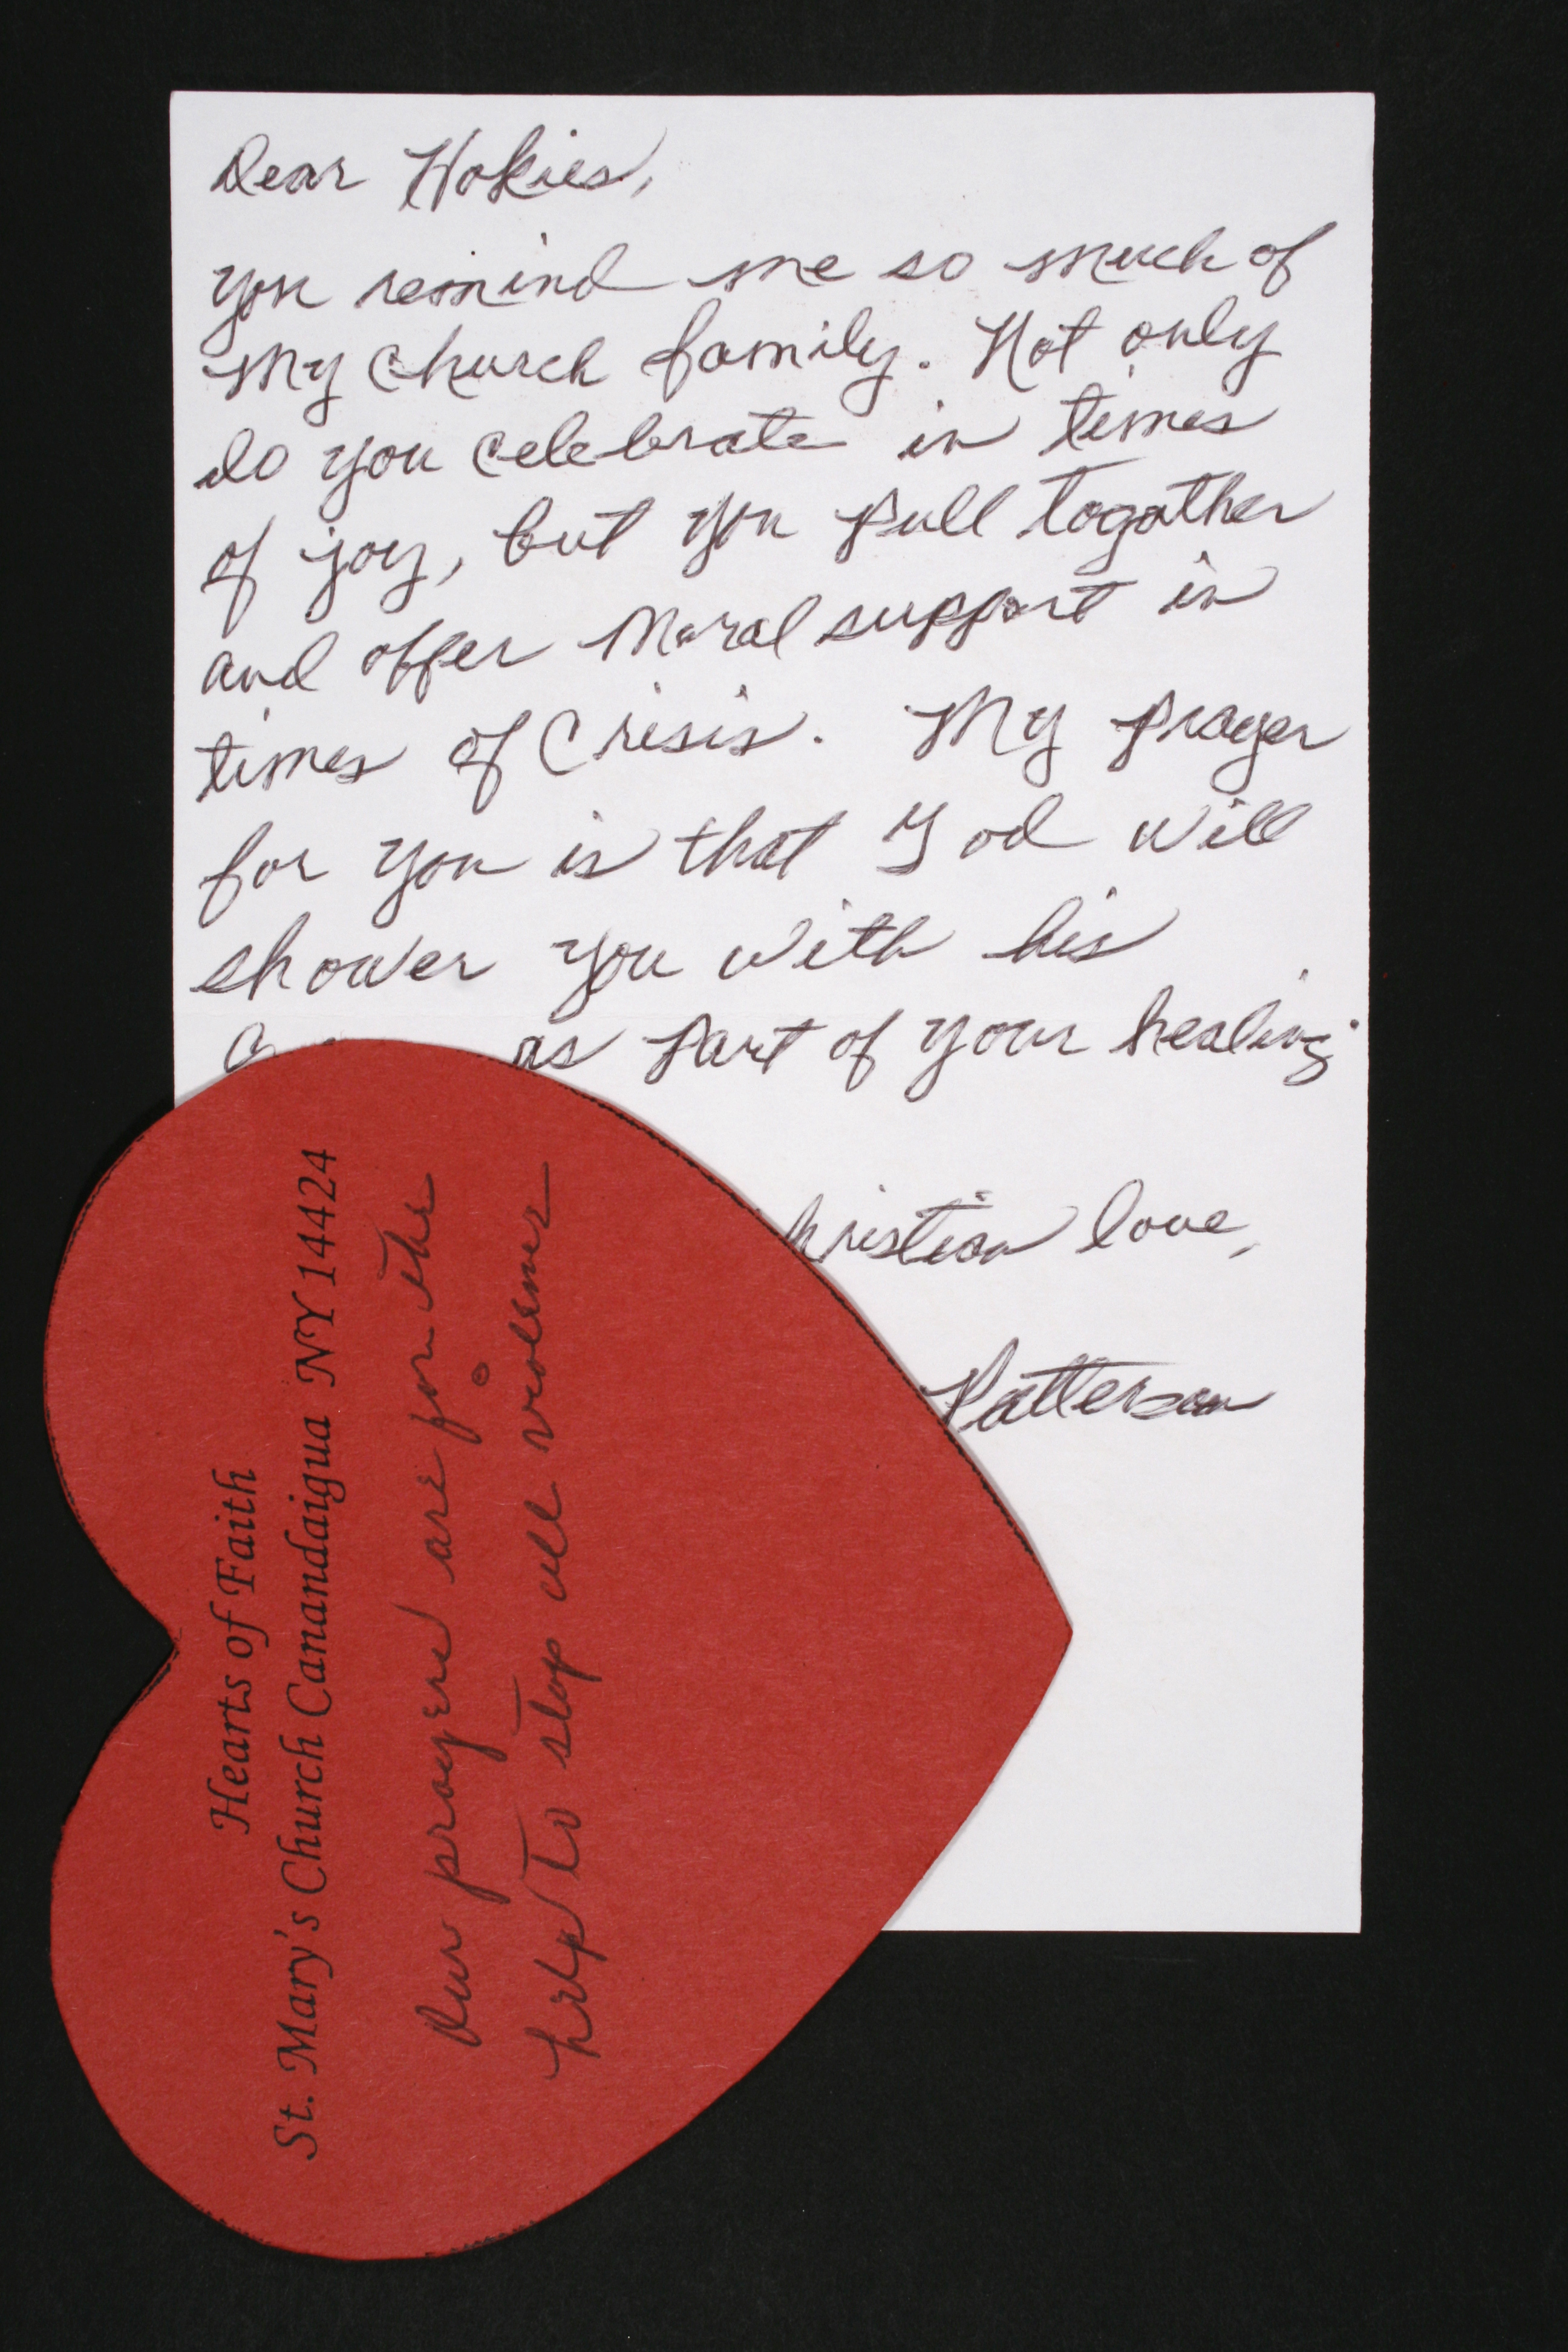 Dear Hokies,
you remind me so much of
my church family. Not only
do you celebrate in times
of joy, but you pull togather
and offer moral support in
times of Crisis. My prayer
for you is that God will
shower you with his
as part of your healing
love,
Patterson
Hearts of Faith
St. Mary's Church Canandaigua NY 14424
Our prayers are for the
help to stop all violence